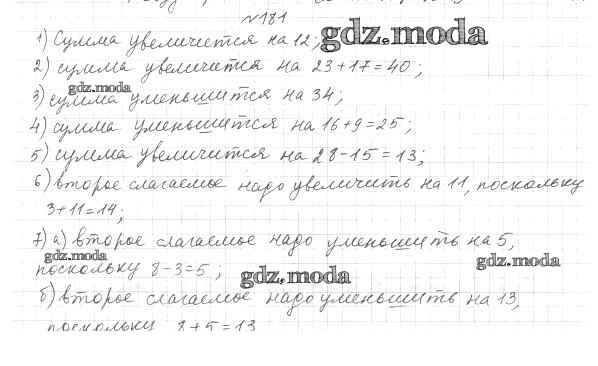 №181
1) Сумма увеличится на 12; gdz.moda
2) сумма увеличится на 23+17=40;
gdz.moda
3) сумма уменьшится на 34;
4) сумма уменьшится на 16+9=25;
5) сумма увеличится на 28-15=13;
6) второе слагаемое надо увеличить на 11, поскольку
3+11=14;
7) а) второе слагаемое надо уменьшить на 5,
gdz.moda gdz.moda
поскольку 8-3=5;
gdz.moda
б) второе слагаемое надо уменьшить на 13,
поскольку 8+5=13